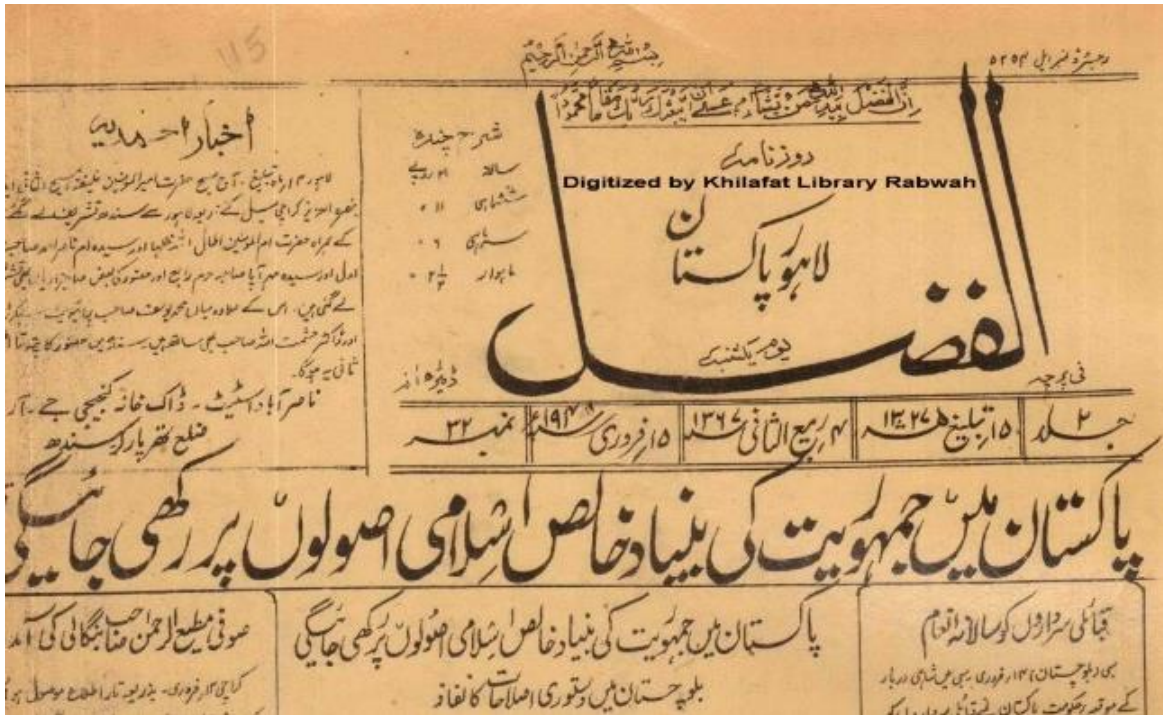 115
بسم اللہ الرحمن الرحیم
رجسٹرڈ نمبر ایل ۵۲۵۴
ان الفضل بید اللہ من یشاء عسیٰ ان یبعثک ربک مقاما محمودا
روزنامہ
Digitized by Khilafat Library Rabwah
لاہور پاکستان
الفضل
یوم یکشنبہ
فی پرچہ
ڈیڑھ آنہ
شرح چندہ
سالانہ ۲۱ روپے
ششماہی ۱۱ "
سہ ماہی ۶ "
ماہوار ۲½ "
جلد ۲
۱۵ تبلیغ ۱۳۲۷ھ
۴ ربیع الثانی ۱۳۶۷ھ
۱۵ فروری ۱۹۴۸ء
نمبر ۳۲
اخبار احمدیہ
لاہور ۱۴ ماہ تبلیغ۔ آج صبح حضرت امیر المومنین خلیفۃ المسیح الثانی
بنصرہ العزیز کراچی میل کے ذریعہ لاہور سے سندھ تشریف لے گئے
کے ہمراہ حضرت ام المومنین اطال اللہ ظلہا اور سیدہ ام ناصر احمد صاحبہ
اول اور سیدہ مہر آپا صاحبہ حرم رابع اور حضور کی بعض صاحبزادیاں بھی
لے گئی ہیں۔ اس کے علاوہ میاں محمد یوسف صاحب پرائیویٹ
اور ڈاکٹر حشمت اللہ صاحب بھی ساتھ ہیں سندھ میں حضور کا پتہ تا
ثانی یہ ہوگا۔
ناصر آباد اسٹیٹ - ڈاک خانہ کنجیجی جے - آر
ضلع تھرپارکر سندھ
پاکستان میں جمہوریت کی بنیاد خالص اسلامی اصولوں پر رکھی جائیگی
قبائلی سرداروں کو سالانہ انعام
سبی (بلوچستان) ۱۴ فروری۔ سبی میں شاہی دربار
کے موقعہ پر حکومت پاکستان نے
پاکستان میں جمہوریت کی بنیاد خالص اسلامی اصولوں پر رکھی جائیگی
بلوچستان میں دستوری اصلاحات کا نفاذ
صوفی مطیع الرحمن صاحب بنگالی کی آمد
کراچی ۱۳ فروری۔ بذریعہ تار اطلاع موصول